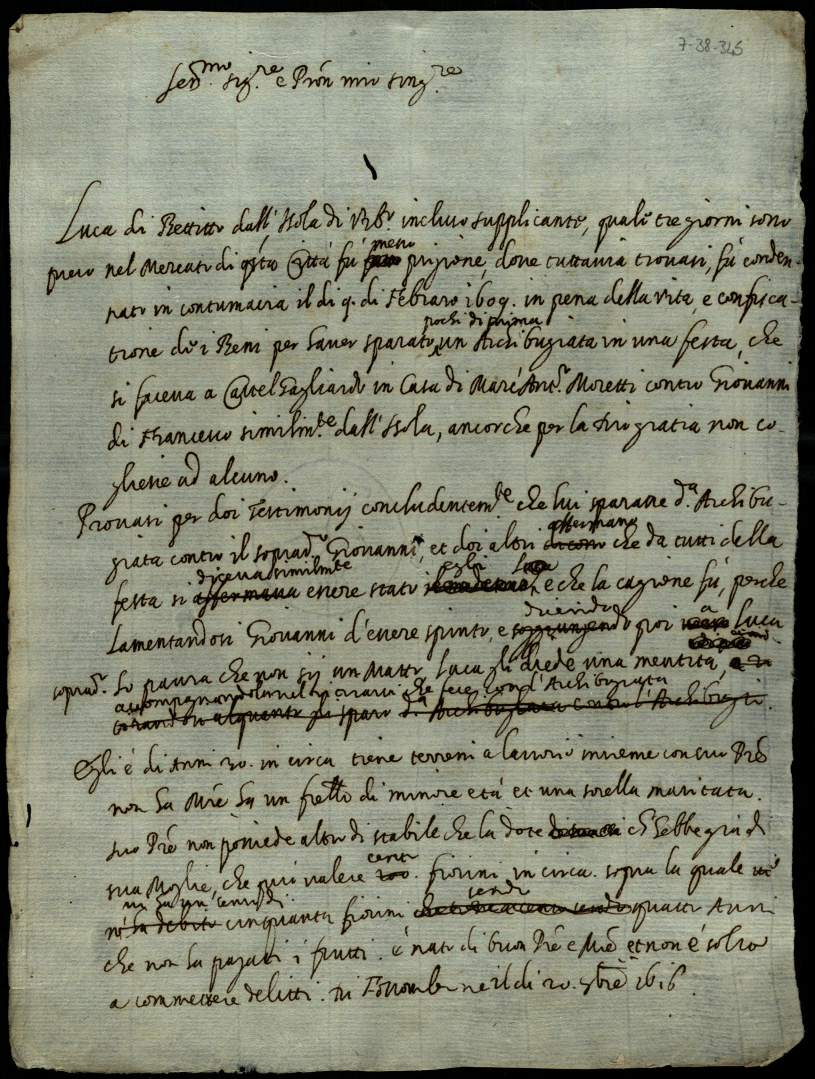 7-38-345
Ser.mo Sig.re e Pròn mio sing.re
Luca di Bettitto dall'Isola di incluso supplicante, quale tre giorni sono
preso nel Mercato di q'sta Città fù messo prigione, dove tuttavia trovasi, fù conden-
nato in contumacia il dì 9. di Febraro 1609. in pena della vita, e confisca-
tione de i Beni per haver sparato pochi dì prima un Archibugiata in una festa, che
si faceva a Castel Gagliardo in Casa di Marc'Ant.o Moretti contro Giovanni
di Francesco similm.te dall'Isola, ancorche per la Dio gratia non co-
gliesse ad alcuno.
Provasi per doi Testimonij concludentem.te che lui sparasse d.a Archibu-
giata contro il soprad.o Giovanni, et doi altri affermano che da tutti della
festa si diceva similm.te essere stato egli Luca, e che la cagione fù, perche
Lamentandosi Giovanni d'essere spinto, e dicendo poi a Luca
soprad.o Ho paura che non sij un Matto, Luca gli diede una mentita,
accompagnandola con l'Archibugiata
Egli è di Anni 20. in circa tiene terreni a lavorìo insieme con suo Prè
non ha Mrè ha un frello di minore età et una sorella maritata.
suo Prè non possiede altro di stabile che la dote ch'hebbe già di
sua Moglie, che può valere cento fiorini in circa. sopra la quale
vi ha un censo di cinquanta fiorini sendo quattro Anni
che non ha pagati i frutti. è nato di buon Prè e Mrè et non è solito
a commettere delitti. Di Fossombrone il dì 20. 9bre 1616.